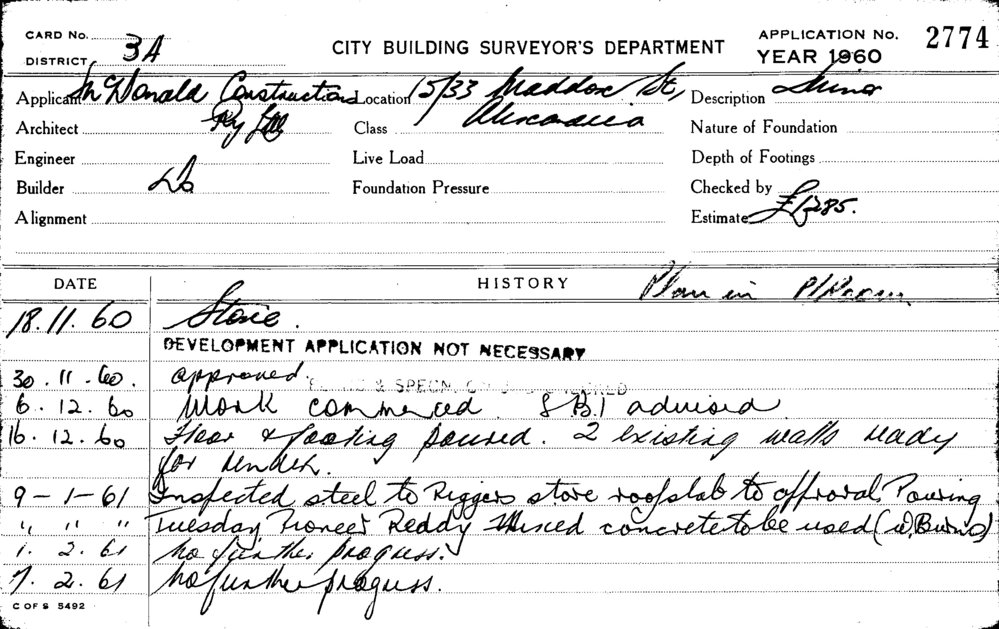 CARD No.
DISTRICT 3A
CITY BUILDING SURVEYOR'S DEPARTMENT
APPLICATION No. 2774
YEAR 1960
Applicant McDonald Constructions
Location 15/33 Maddox St,
Description
Architect Pty Ltd
Class Alexandria
Nature of Foundation
Engineer
Live Load
Depth of Footings
Builder Do
Foundation Pressure
Checked by
Alignment
Estimate £1285.
DATE
HISTORY
Plan in P/Room.
18.11.60 Store.
DEVELOPMENT APPLICATION NOT NECESSARY
30.11.60. approved.
& SPECN.
6.12.60 Work commenced. S.B.I advised
16.12.60 Floor & footing poured. 2 existing walls ready
for render.
9-1-61 Inspected steel to Riggers store roof slab to approval. Pouring
" " " Tuesday, Pioneer Reddy Mixed concrete to be used (W. Burns)
1.2.61 No further progress.
7.2.61 No further progress.
C OF S 5492